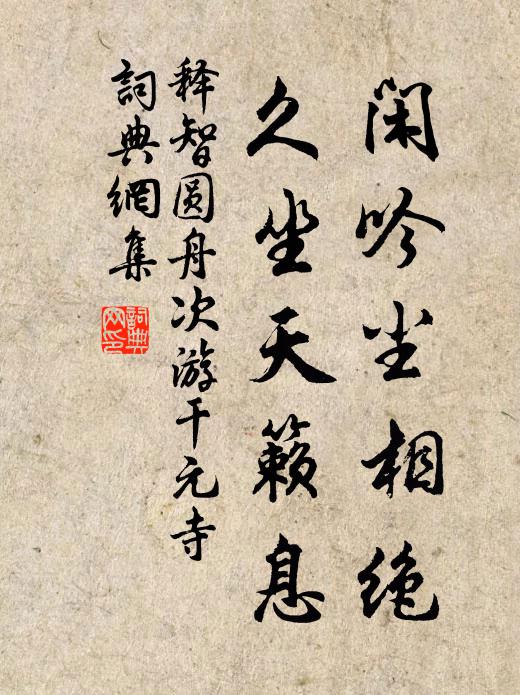 闲吟尘相绝
久坐天籁息
释智圆舟次游干元寺
詞典網集
詞典
网印